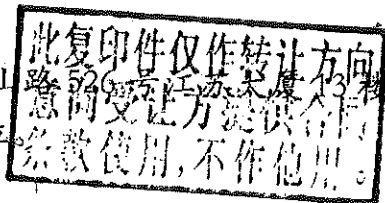 此复印件仅作转让方向
山路526号江苏大厦13楼
意向受让方提供合同
条款使用,不作他用。